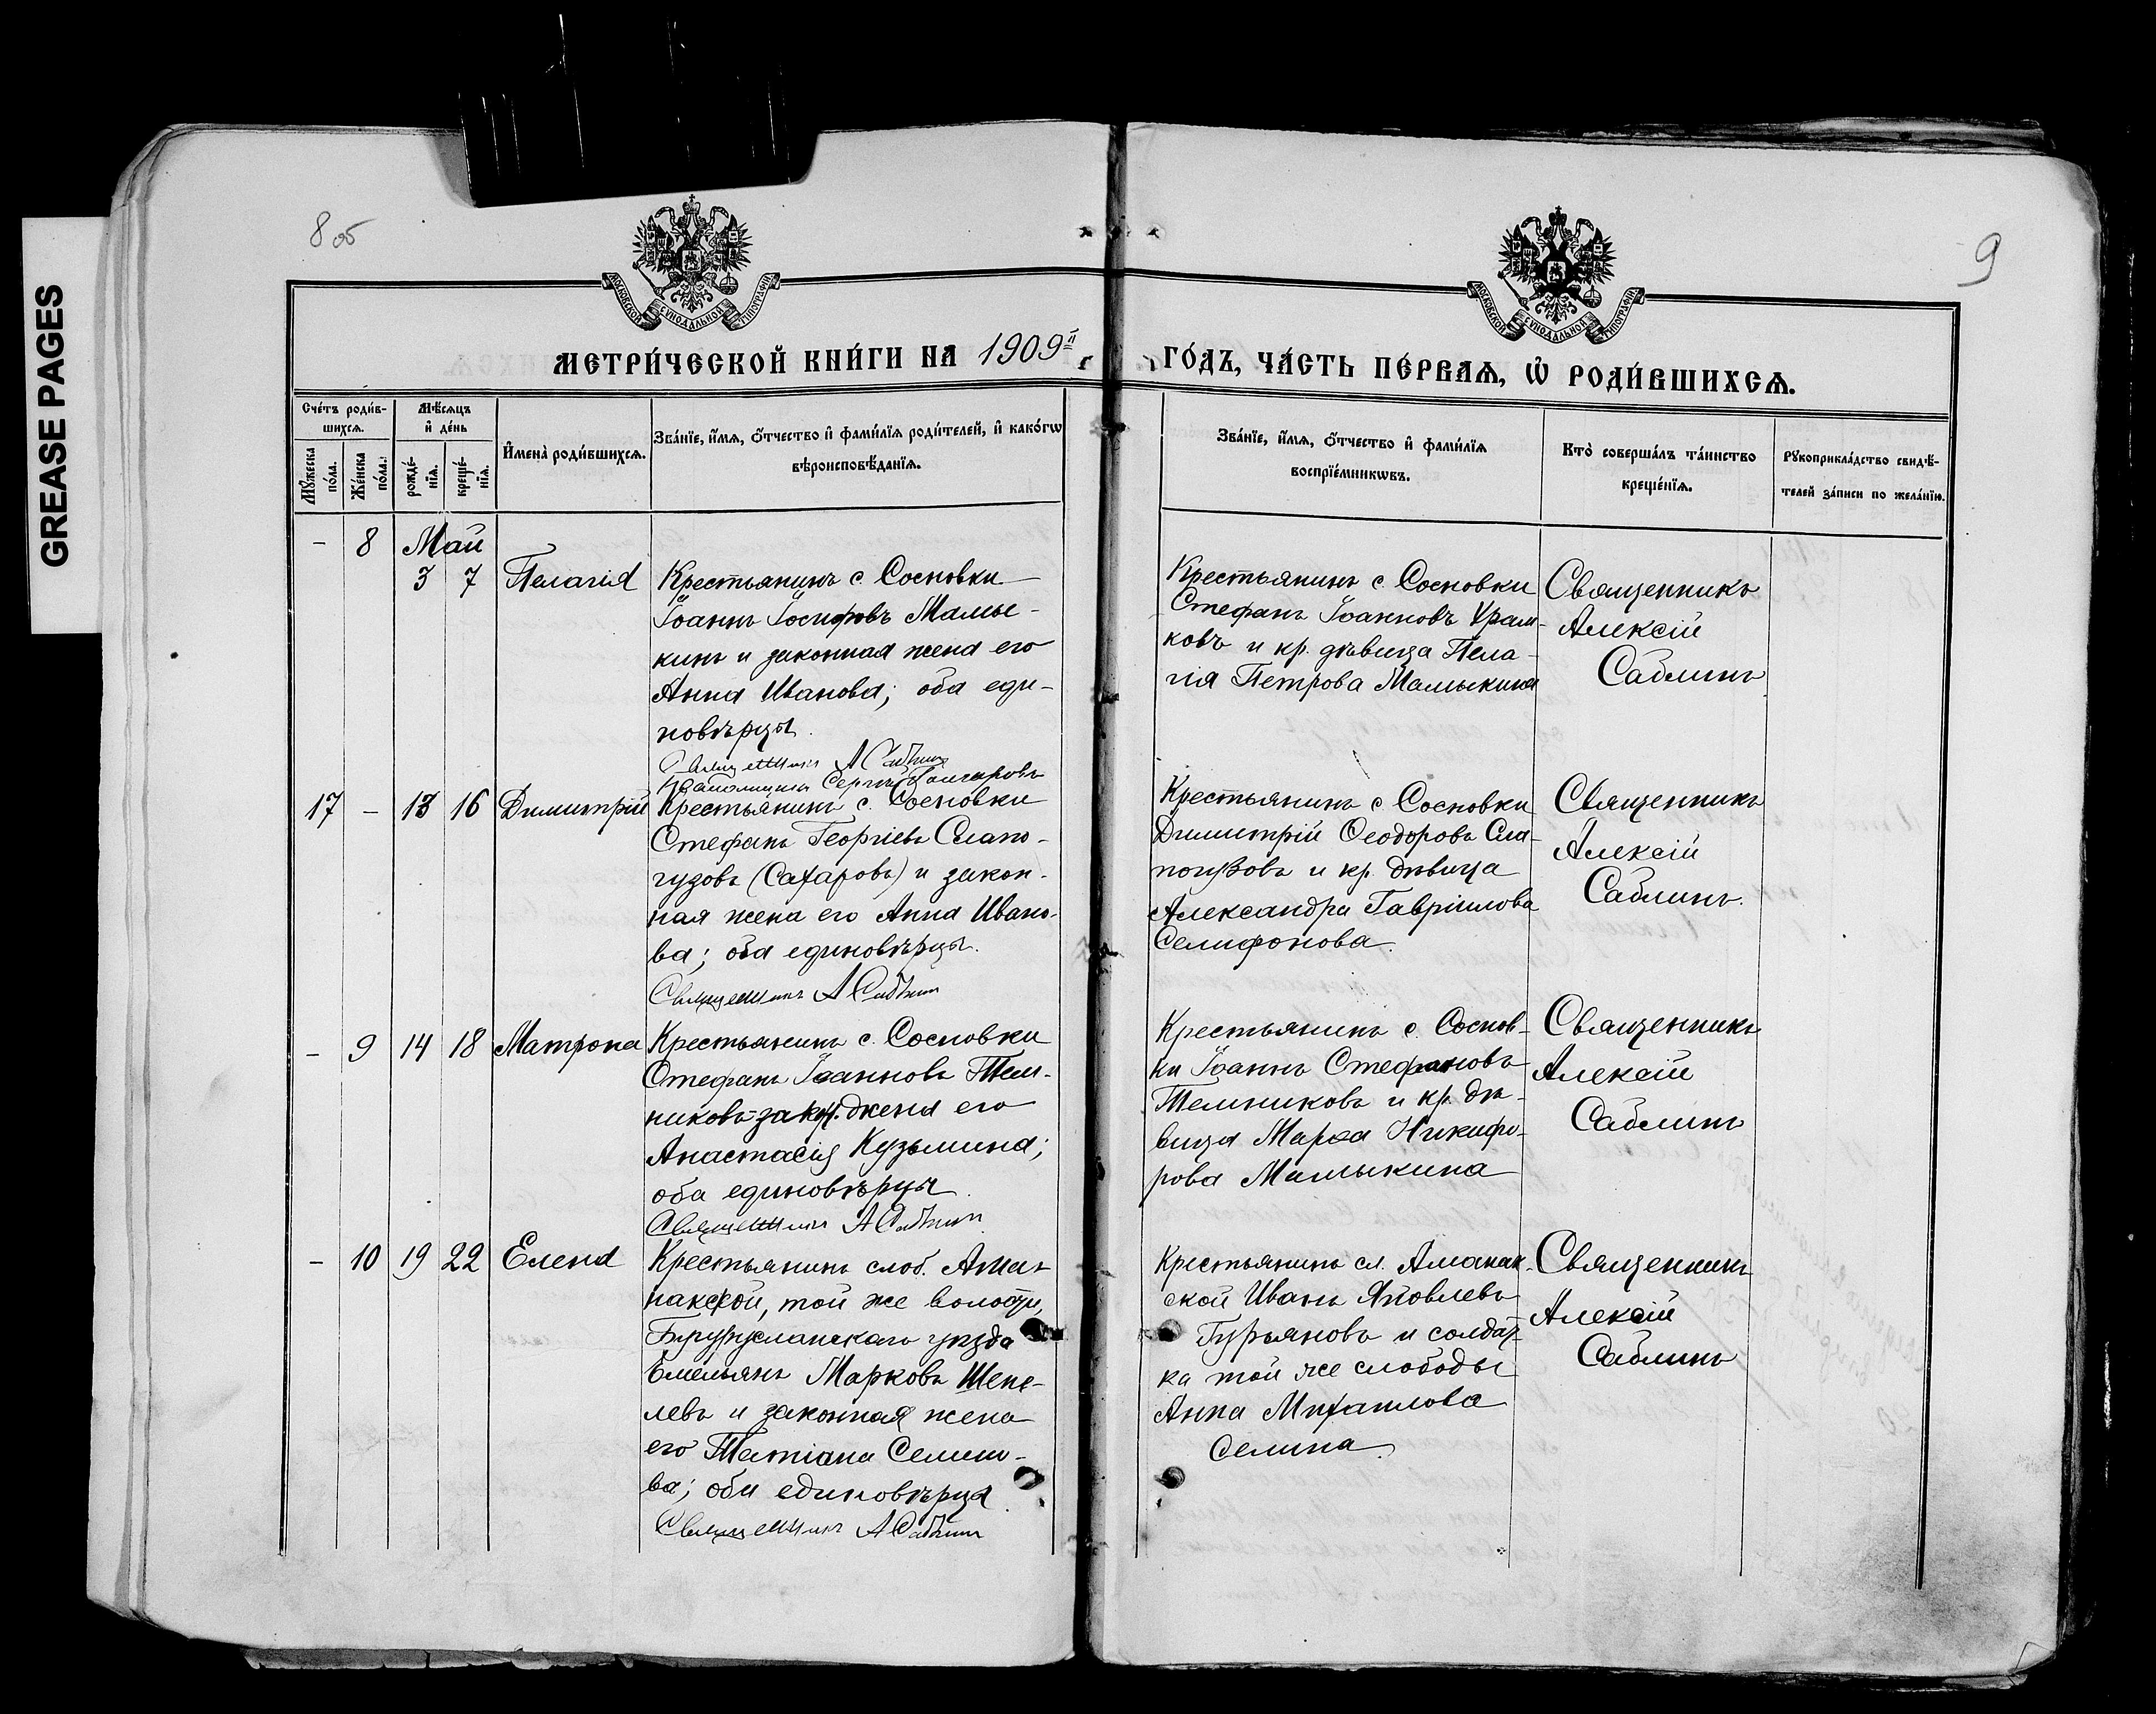 GREASE PAGES
8 об
9
МОСКОВСКОЙ СѴНОДАЛЬНОЙ ТИПОГРАФІИ
МОСКОВСКОЙ СѴНОДАЛЬНОЙ ТИПОГРАФІИ
МЕТРИ́ЧЕСКОЙ КНИ́ГИ НА 1909й
ГО́ДЪ, ЧА́СТЬ ПЕ́РВАѦ, Ѡ҆ РОДИ́ВШИХСѦ.
Сче́тъ роди́в-
шихсѧ.
Мѣ́сѧцъ
и҆ де́нь
Мꙋ́жеска
по́ла.
Же́нска
по́ла.
рожде́-
нїѧ.
креще́-
нїѧ.
И҆мена̀ роди́вшихсѧ.
Зва́нїе, и҆́мѧ, ѻ҆́тчество и҆ фами́лїѧ роди́телей, и҆ како́гѡ
вѣроисповѣ́данїѧ.
Зва́нїе, и҆́мѧ, ѻ҆́тчество и҆ фами́лїѧ
воспрїе́мникѡвъ.
Кто̀ соверша́лъ та́инство
креще́нїѧ.
Рꙋкоприкла́дство свидѣ́-
телей за́писи по жела́нїю.
- 8 Май
3 7 Пелагія Крестьянинъ с. Сосновки
Іоаннъ Іосифовъ Мамы-
кинъ и законная жена его
Анна Иванова; оба еди-
новѣрцы.
Священникъ А Саблинъ
Псаломщикъ Сергій Гончаровъ
Крестьянинъ с. Сосновки
Стефанъ Іоанновъ Храм-
ковъ и кр. дѣвица Пела-
гія Петрова Мамыкина
Священникъ
Алексій
Саблинъ
17 - 13 16 Димитрій Крестьянинъ с. Сосновки
Стефанъ Георгіевъ Слапо-
гузовъ (Сахаровъ) и закон-
ная жена его Анна Ивано-
ва; оба единовѣрцы.
Священникъ А Саблинъ
Крестьянинъ с. Сосновки
Димитрій Ѳеодоровъ Сла-
погузовъ и кр. дѣвица
Александра Гавріилова
Селифонова.
Священникъ
Алексій
Саблинъ.
- 9 14 18 Матрона Крестьянинъ с. Сосновки
Стефанъ Іоанновъ Тем-
никовъ-зак. жена его
Анастасія Кузьмина;
оба единовѣрцы.
Священникъ А Саблинъ
Крестьянинъ с. Соснов-
ки Іоаннъ Стефановъ
Темниковъ и кр. дѣ-
вица Марѳа Никифо-
рова Мамыкина
Священникъ
Алексій
Саблинъ
- 10 19 22 Елена Крестьянинъ слоб. Аман-
накской, той же волости,
Бугурусланскаго уѣзда
Емельянъ Марковъ Шепе-
левъ и законная жена
его Татіана Семено-
ва; оба единовѣрца.
Священникъ А Саблинъ
Крестьянинъ сл. Аманак-
ской Иванъ Яковлевъ
Гурьяновъ и солдат-
ка той же слободы
Анна Михаилова
Селина.
Священникъ
Алексій
Саблинъ